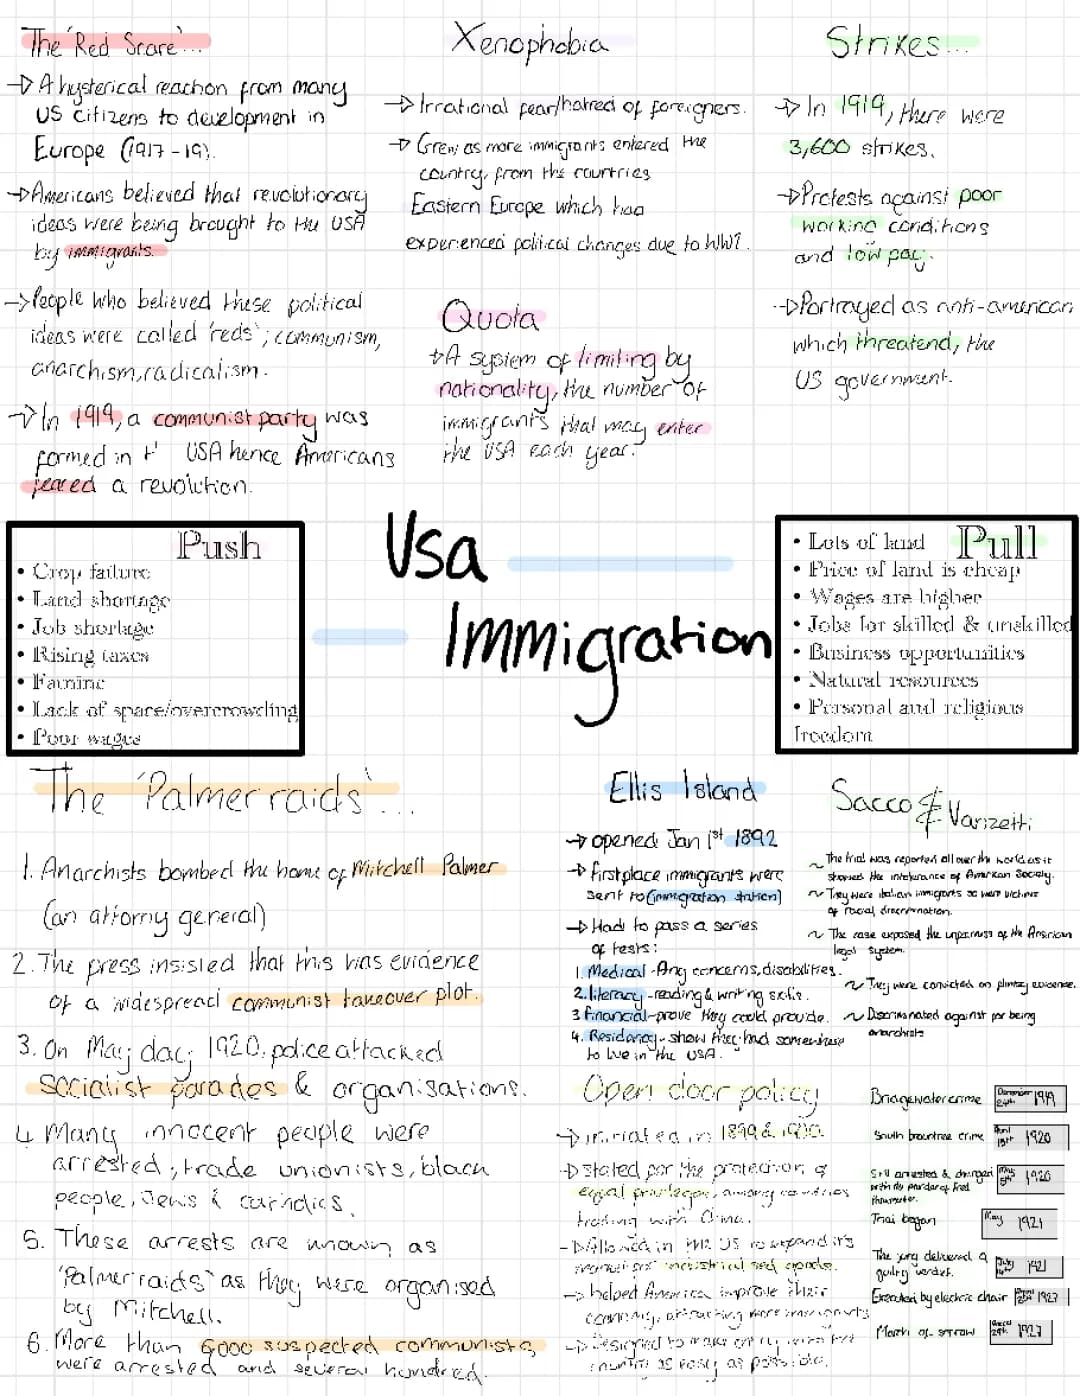 The 'Red Scare'...
→ A hysterical reaction from many
US citizens to development in
Europe (1917-19).
→ Americans believed that revolutionary
ideas were being brought to the USA
by immigrants.
→ People who believed these political
ideas were called 'reds'; communism,
anarchism, radicalism.
→ In 1919, a communist party was
formed in t' USA hence Americans
feared a revolution.
Xenophobia
→ Irrational fear/hatred of foreigners.
→ Grew as more immigrants entered the
country, from the countries
Eastern Europe which had
experienced political changes due to WW1.
Quota
→ A system of limiting by
nationality, the number of
immigrants that may enter
the USA each year.
Strikes...
→ In 1919, there were
3,600 strikes.
→ Protests against poor
working conditions
and low pay.
→ Portrayed as anti-american
which threatend, the
US government.
Push
• Crop failure
• Land shortage
• Job shortage
• Rising taxes
• Famine
• Lack of space/overcrowding
• Poor wages
Usa
Immigration
Pull
• Lots of land
• Price of land is cheap
• Wages are higher
• Jobs for skilled & unskilled
• Business opportunities
• Natural resources
• Personal and religious
freedom
The 'Palmer raids'...
1. Anarchists bombed the home of Mitchell Palmer
(an attorny general)
2. The press insisted that this was evidence
of a widespread communist takeover plot.
3. On May day, 1920, police attacked
socialist parades & organisations.
4 Many innocent people were
arrested, trade unionists, black
people, Jews & catholics.
5. These arrests are known as
'Palmer raids' as they were organised
by Mitchell.
6. More than 6000 suspected communists
were arrested and several hundred.
Ellis Island
→ opened Jan 1st 1892
→ first place immigrants were
sent to (immigration station)
→ Had to pass a series
of tests:
1. Medical - Any concerns, disabilities.
2. literacy - reading & writing skills.
3 Financial - prove they could provide.
4. Residency - show they had somewhere
to live in the USA.
Open door policy
→ initiated in 1899 & 1900
→ stated for the protection of
equal privileges, among countries
trading with China.
→ Allowed in the US to expand it's
market for industrialised goods.
→ helped America improve their
economy, attracting more immigrants
→ Designed to make entry into the
country as easy as possible.
Sacco & Vanzetti
~ The trial was reported all over the world as it
showed the intolerance of American Society.
~ They were italian immigrants so were victims
of racial discrimination.
~ The case exposed the unfairness of the American
legal system.
~ They were convicted on flimsy evidence.
~ Discriminated against for being
anarchists
Bridgewater crime December 24th 1919
South braintree crime April 15th 1920
arrested & charged May 5th 1920
with the murder of fred
Trial began May 1921
The jury delivered a
guilty verdict. July 14th 1921
Executed by electric chair 1927
March of sorrow 1927